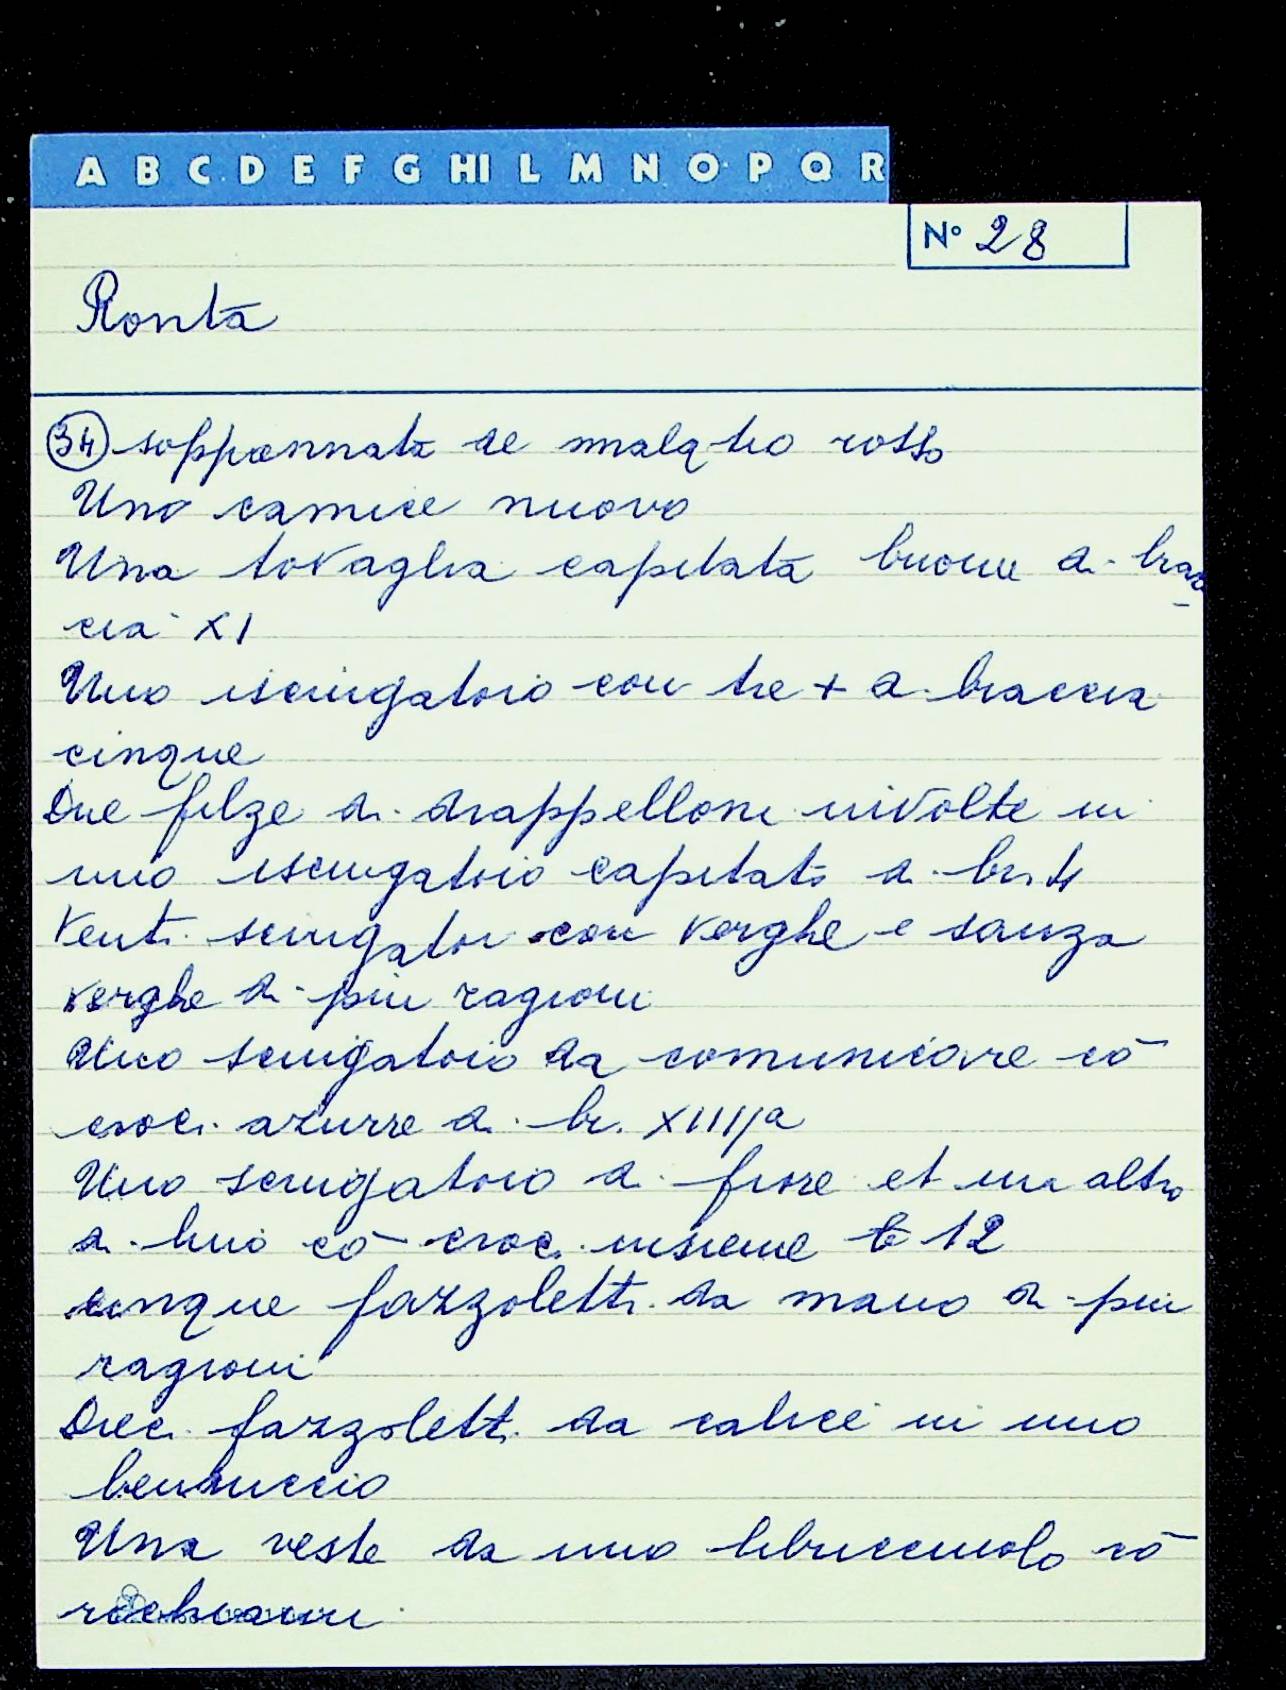 A B C D E F G HI L M N O P Q R
N° 28
Ronta
34 soppannata de rosso
Uno camice nuovo
Una tovaglia capitata buona di brac
cia XI
Uno isciugatoio con tre + di braccia
cinque
Due filze di drappelloni rivolte in
uno isciugatoio capitato di br. 4
Venti sciugatoi con verghe e sanza
verghe di più ragioni
Uno sciugatoio da comunicare cō
croci azurre di br. XIIIIa
Uno sciugatoio di fiore et un altro
di lino cō croci insieme 12
cinque fazzoletti da mano di più
ragioni
Dieci fazzoletti da calice in uno
benduccio
Una veste da uno libriccuolo cō